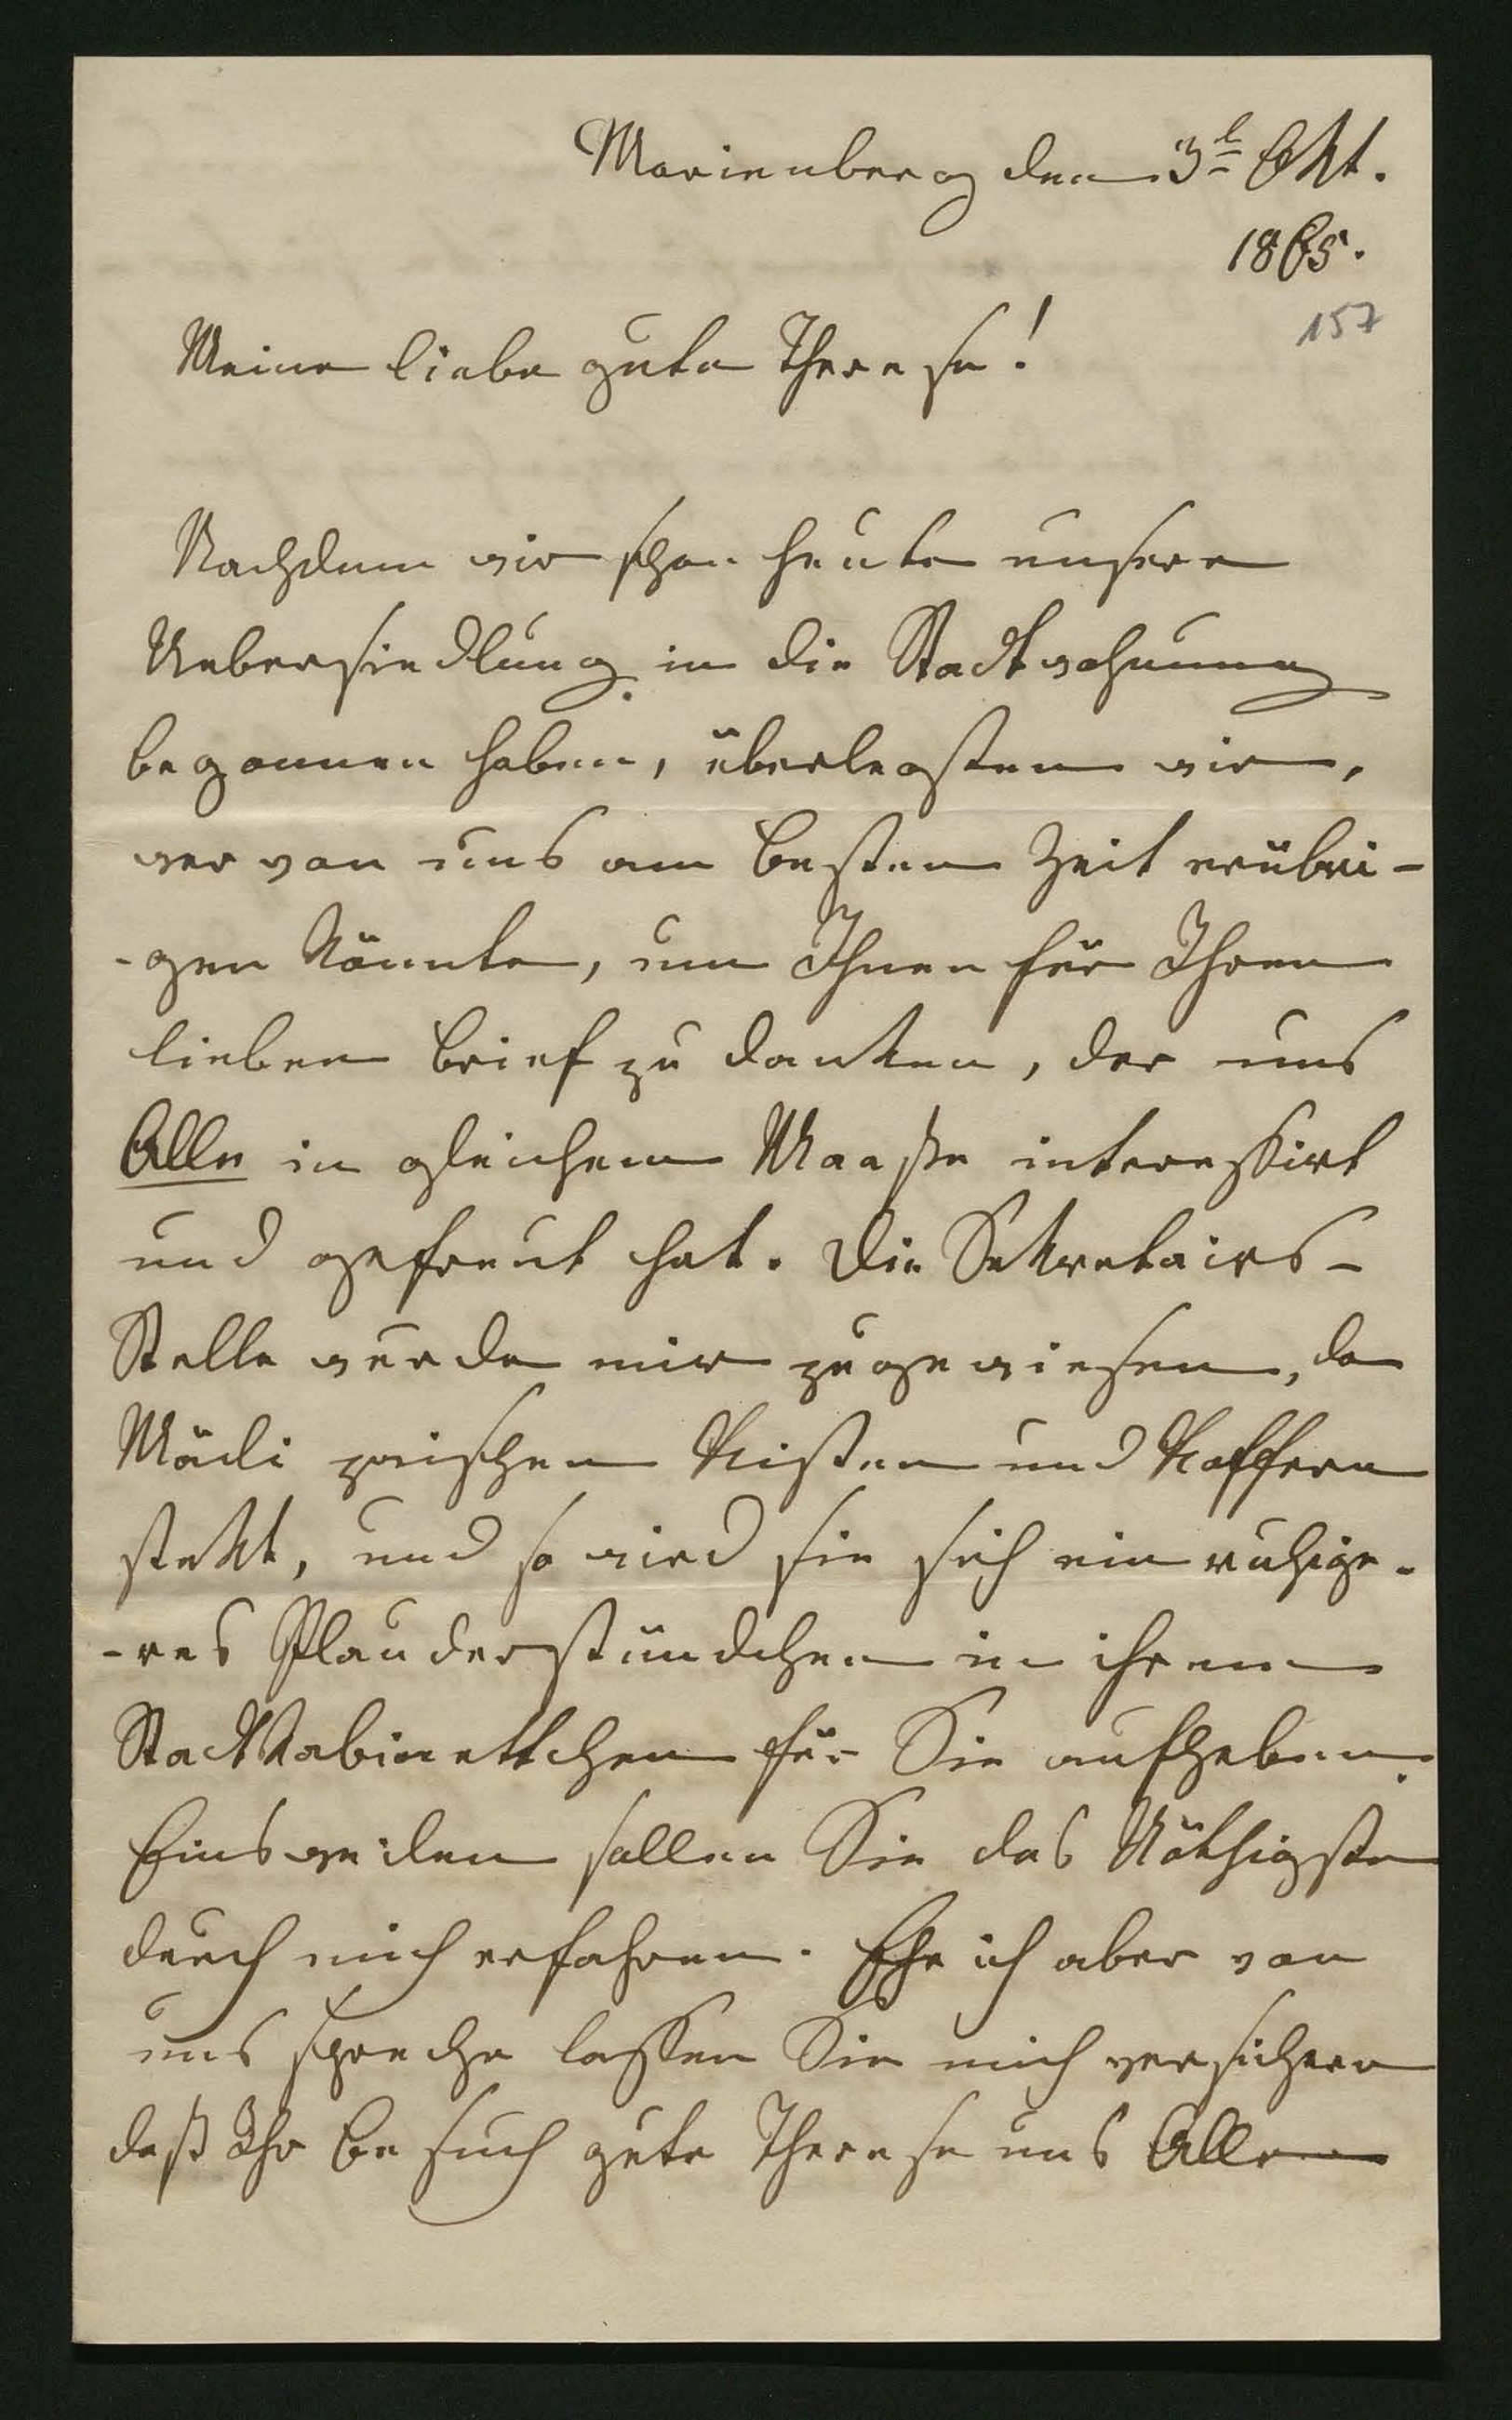 Marienberg den 3t Okt.
1865.
157
Meine liebe gute Therese!
Nachdem wir schon heute unsere
Uebersiedlung in die Stadtwohnung
begonnen haben, überlegten wir,
wer von uns am besten Zeit erübri-
-gen könnte, um Ihnen für Ihren
lieben Brief zu danken, der uns
Alle in gleichem Maaße interessirt
und gefreut hat. Die Sekretairs-
Stelle wurde mir zugewiesen, da
Mädi zwischen Kisten und Koffern
stekt, und so wird sie sich ein ruhige-
-res Plauderstündchen in ihrem
Stadtkabinettchen für Sie aufheben.
Einsweilen sollen Sie das Nöthigste
durch mich erfahren. Ehe ich aber von
uns spreche lassen Sie mich versichern
daß Ihr Besuch gute Therese uns Allen